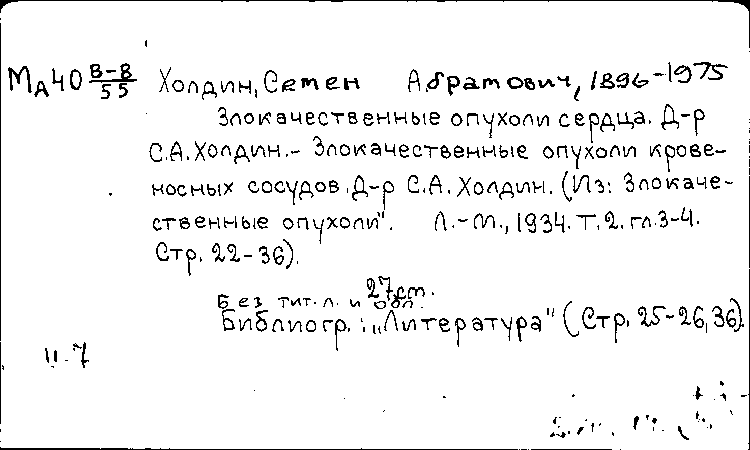 МА40 В-В/55 Холдин, Семен Абрамович, 1896-1975
Злокачественные опухоли сердца. Д-р
С.А. Холдин.- Злокачественные опухоли крове-
носных сосудов. Д-р С.А. Холдин. (Из: Злокаче-
ственные опухоли". Л.-М., 1934. Т. 2. гл. 3-4.
Стр. 22-36).
27 cm.
Без тит. л. и обл.
Библиогр.: „Литература" (Стр. 25-26, 36).